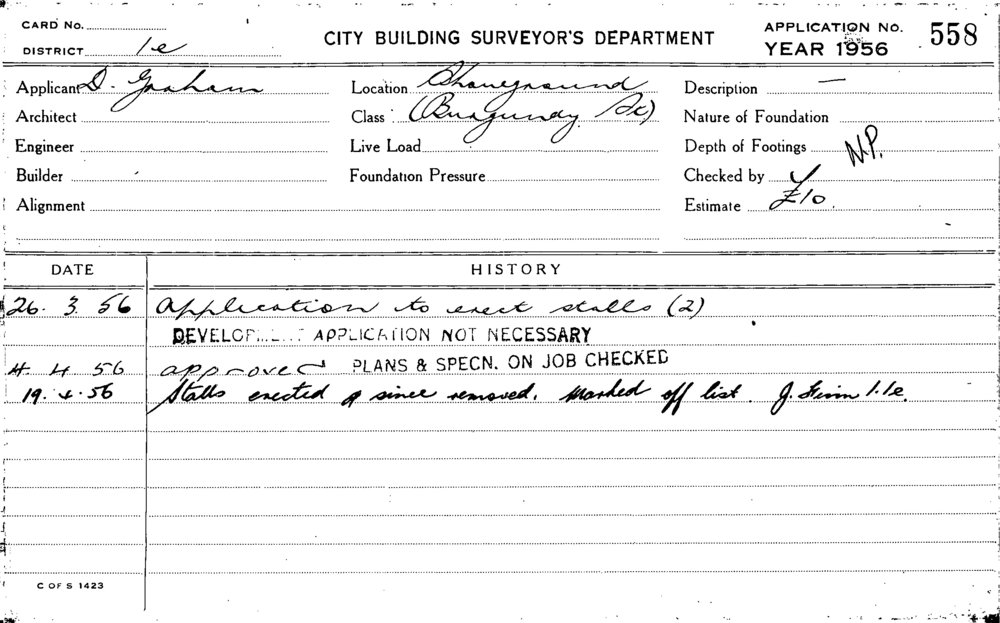 CARD No.
DISTRICT 1e
CITY BUILDING SURVEYOR'S DEPARTMENT
APPLICATION No. 558
YEAR 1956
Applicant D. Graham
Location Showground
Description —
Architect
Class (Burgundy St)
Nature of Foundation
Engineer
Live Load
Depth of Footings N.P.
Builder
Foundation Pressure
Checked by
Alignment
Estimate £10.
DATE HISTORY
26. 3. 56 Application to erect stalls (2)
DEVELOPMENT APPLICATION NOT NECESSARY
4. 4. 56 approved PLANS & SPECN. ON JOB CHECKED
19. 4. 56 Stalls erected & since removed. Marked off list. J. 1e.
C OF S 1423